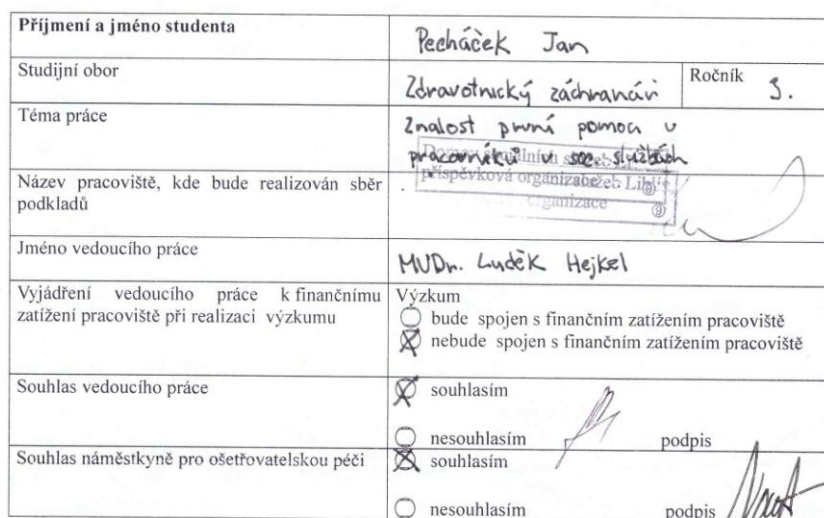 Příjmení a jméno studenta
Pecháček Jan
Studijní obor
Zdravotnický záchranář
Ročník 3.
Téma práce
Znalost první pomoci u
pracovníků v soc. službách
Název pracoviště, kde bude realizován sběr
podkladů
příspěvková organizace
organizace
Jméno vedoucího práce
MUDr. Luděk Hejkel
Vyjádření vedoucího práce k finančnímu
zatížení pracoviště při realizaci výzkumu
Výzkum
bude spojen s finančním zatížením pracoviště
nebude spojen s finančním zatížením pracoviště
Souhlas vedoucího práce
souhlasím
nesouhlasím podpis
Souhlas náměstkyně pro ošetřovatelskou péči
souhlasím
nesouhlasím podpis